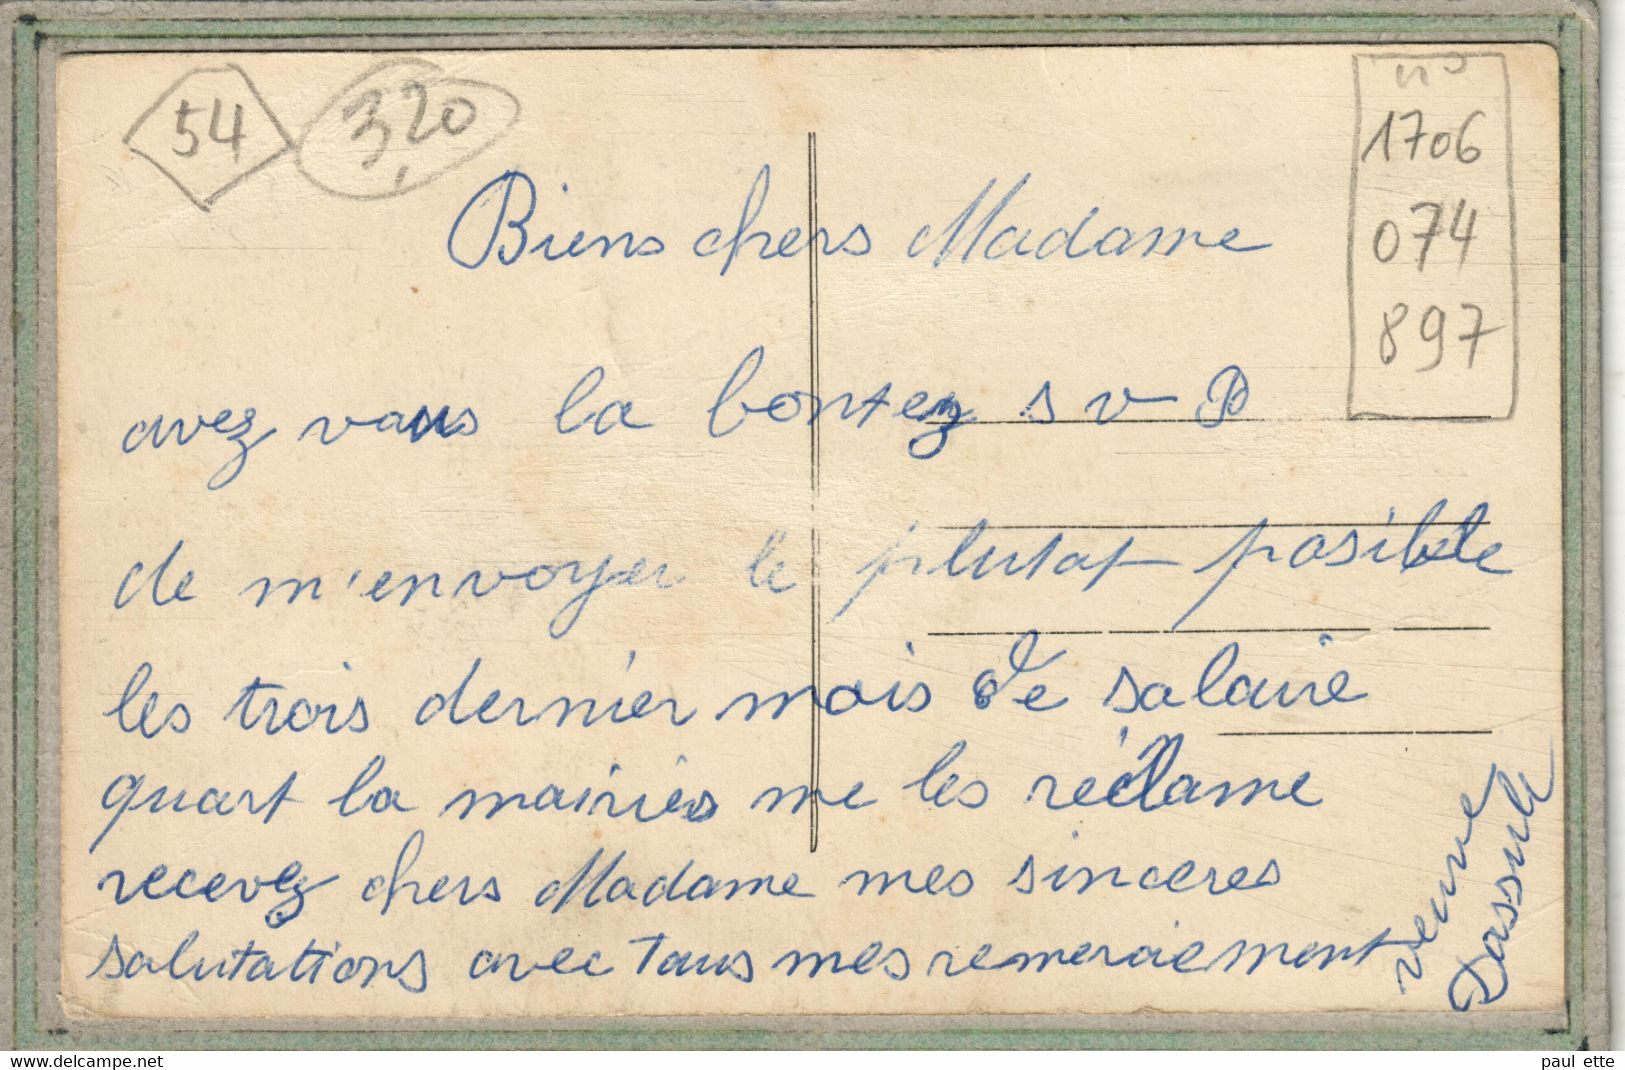 54
320
no
1706
074
897
Biens chers Madame
avez vous la bontez s v P
de m'envoyer le plutot posible
les trois dernier mois de salaire
quart la mairies me les réclame
recevez chers Madame mes sinceres
salutations avec Tous mes remerciement
veuve
delcampe.net
paul ette